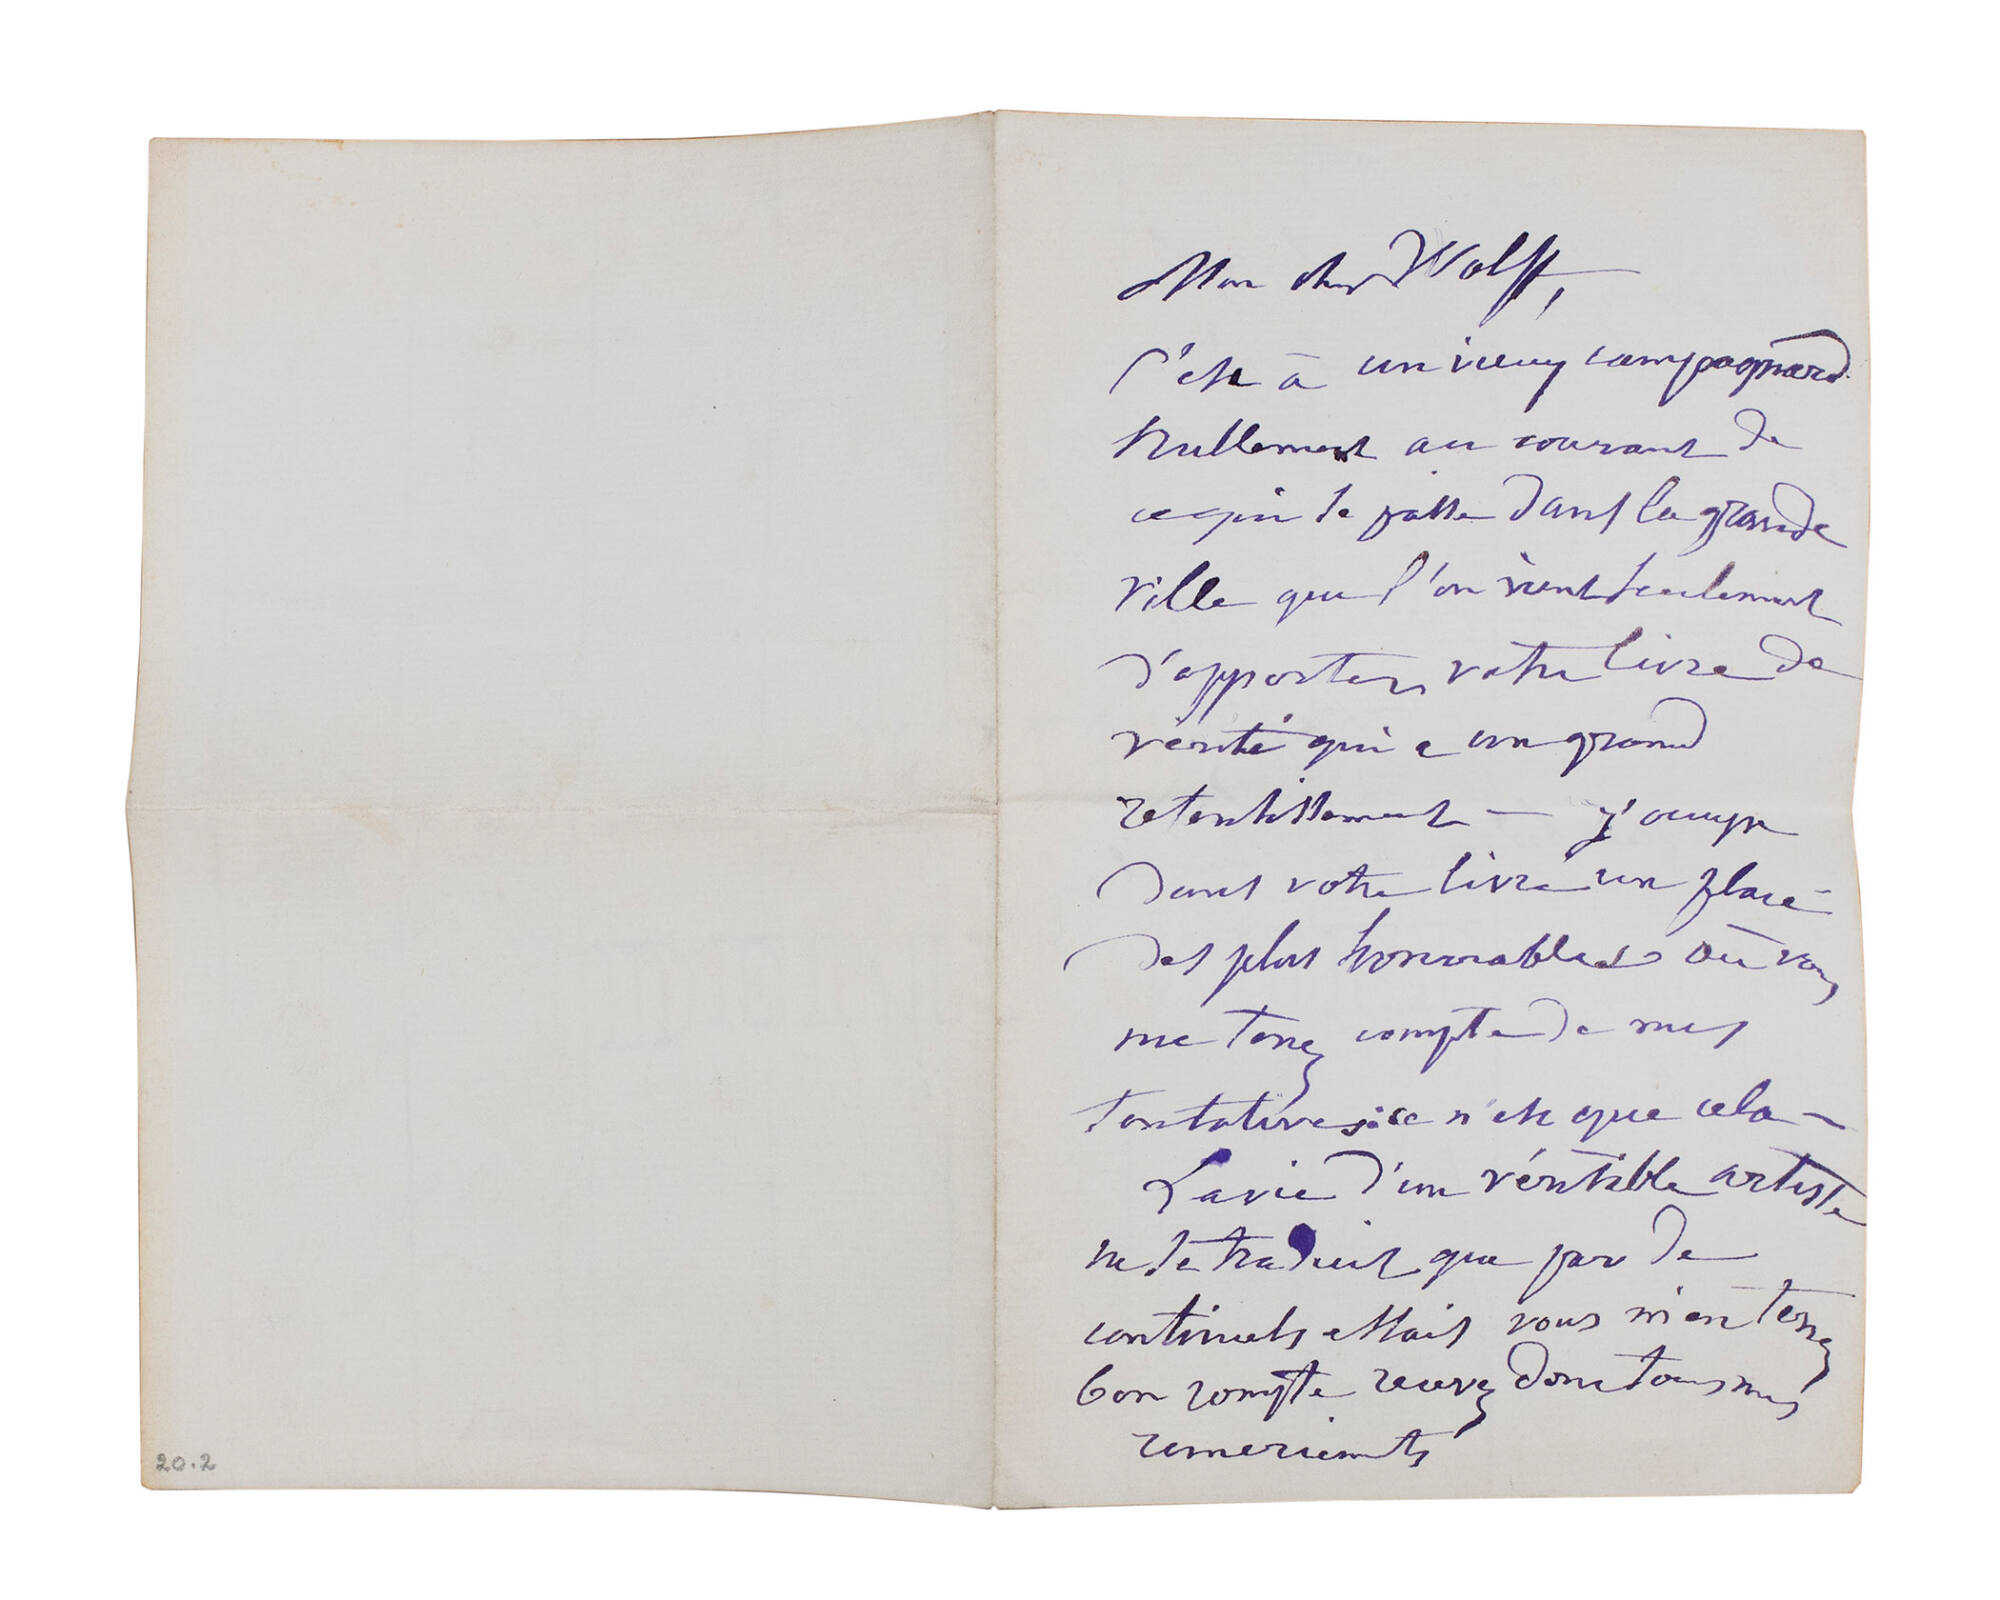 Mon cher Wolff,
C'est à un vieux campagnard
nullement au courant de
ce qui se passe dans la grande
ville que l'on vient seulement
d'apporter votre livre de
vérité qui a un grand
retentissement — j'occupe
dans votre livre un place
des plus honorables où vous
me tenez compte de mes
tentatives: ce n'est que cela —
La vie d'un véritable artiste
ne se traduit que par de
continuels essais vous m'en tenez
bon compte recevez donc tous mes
remerciements
20.2